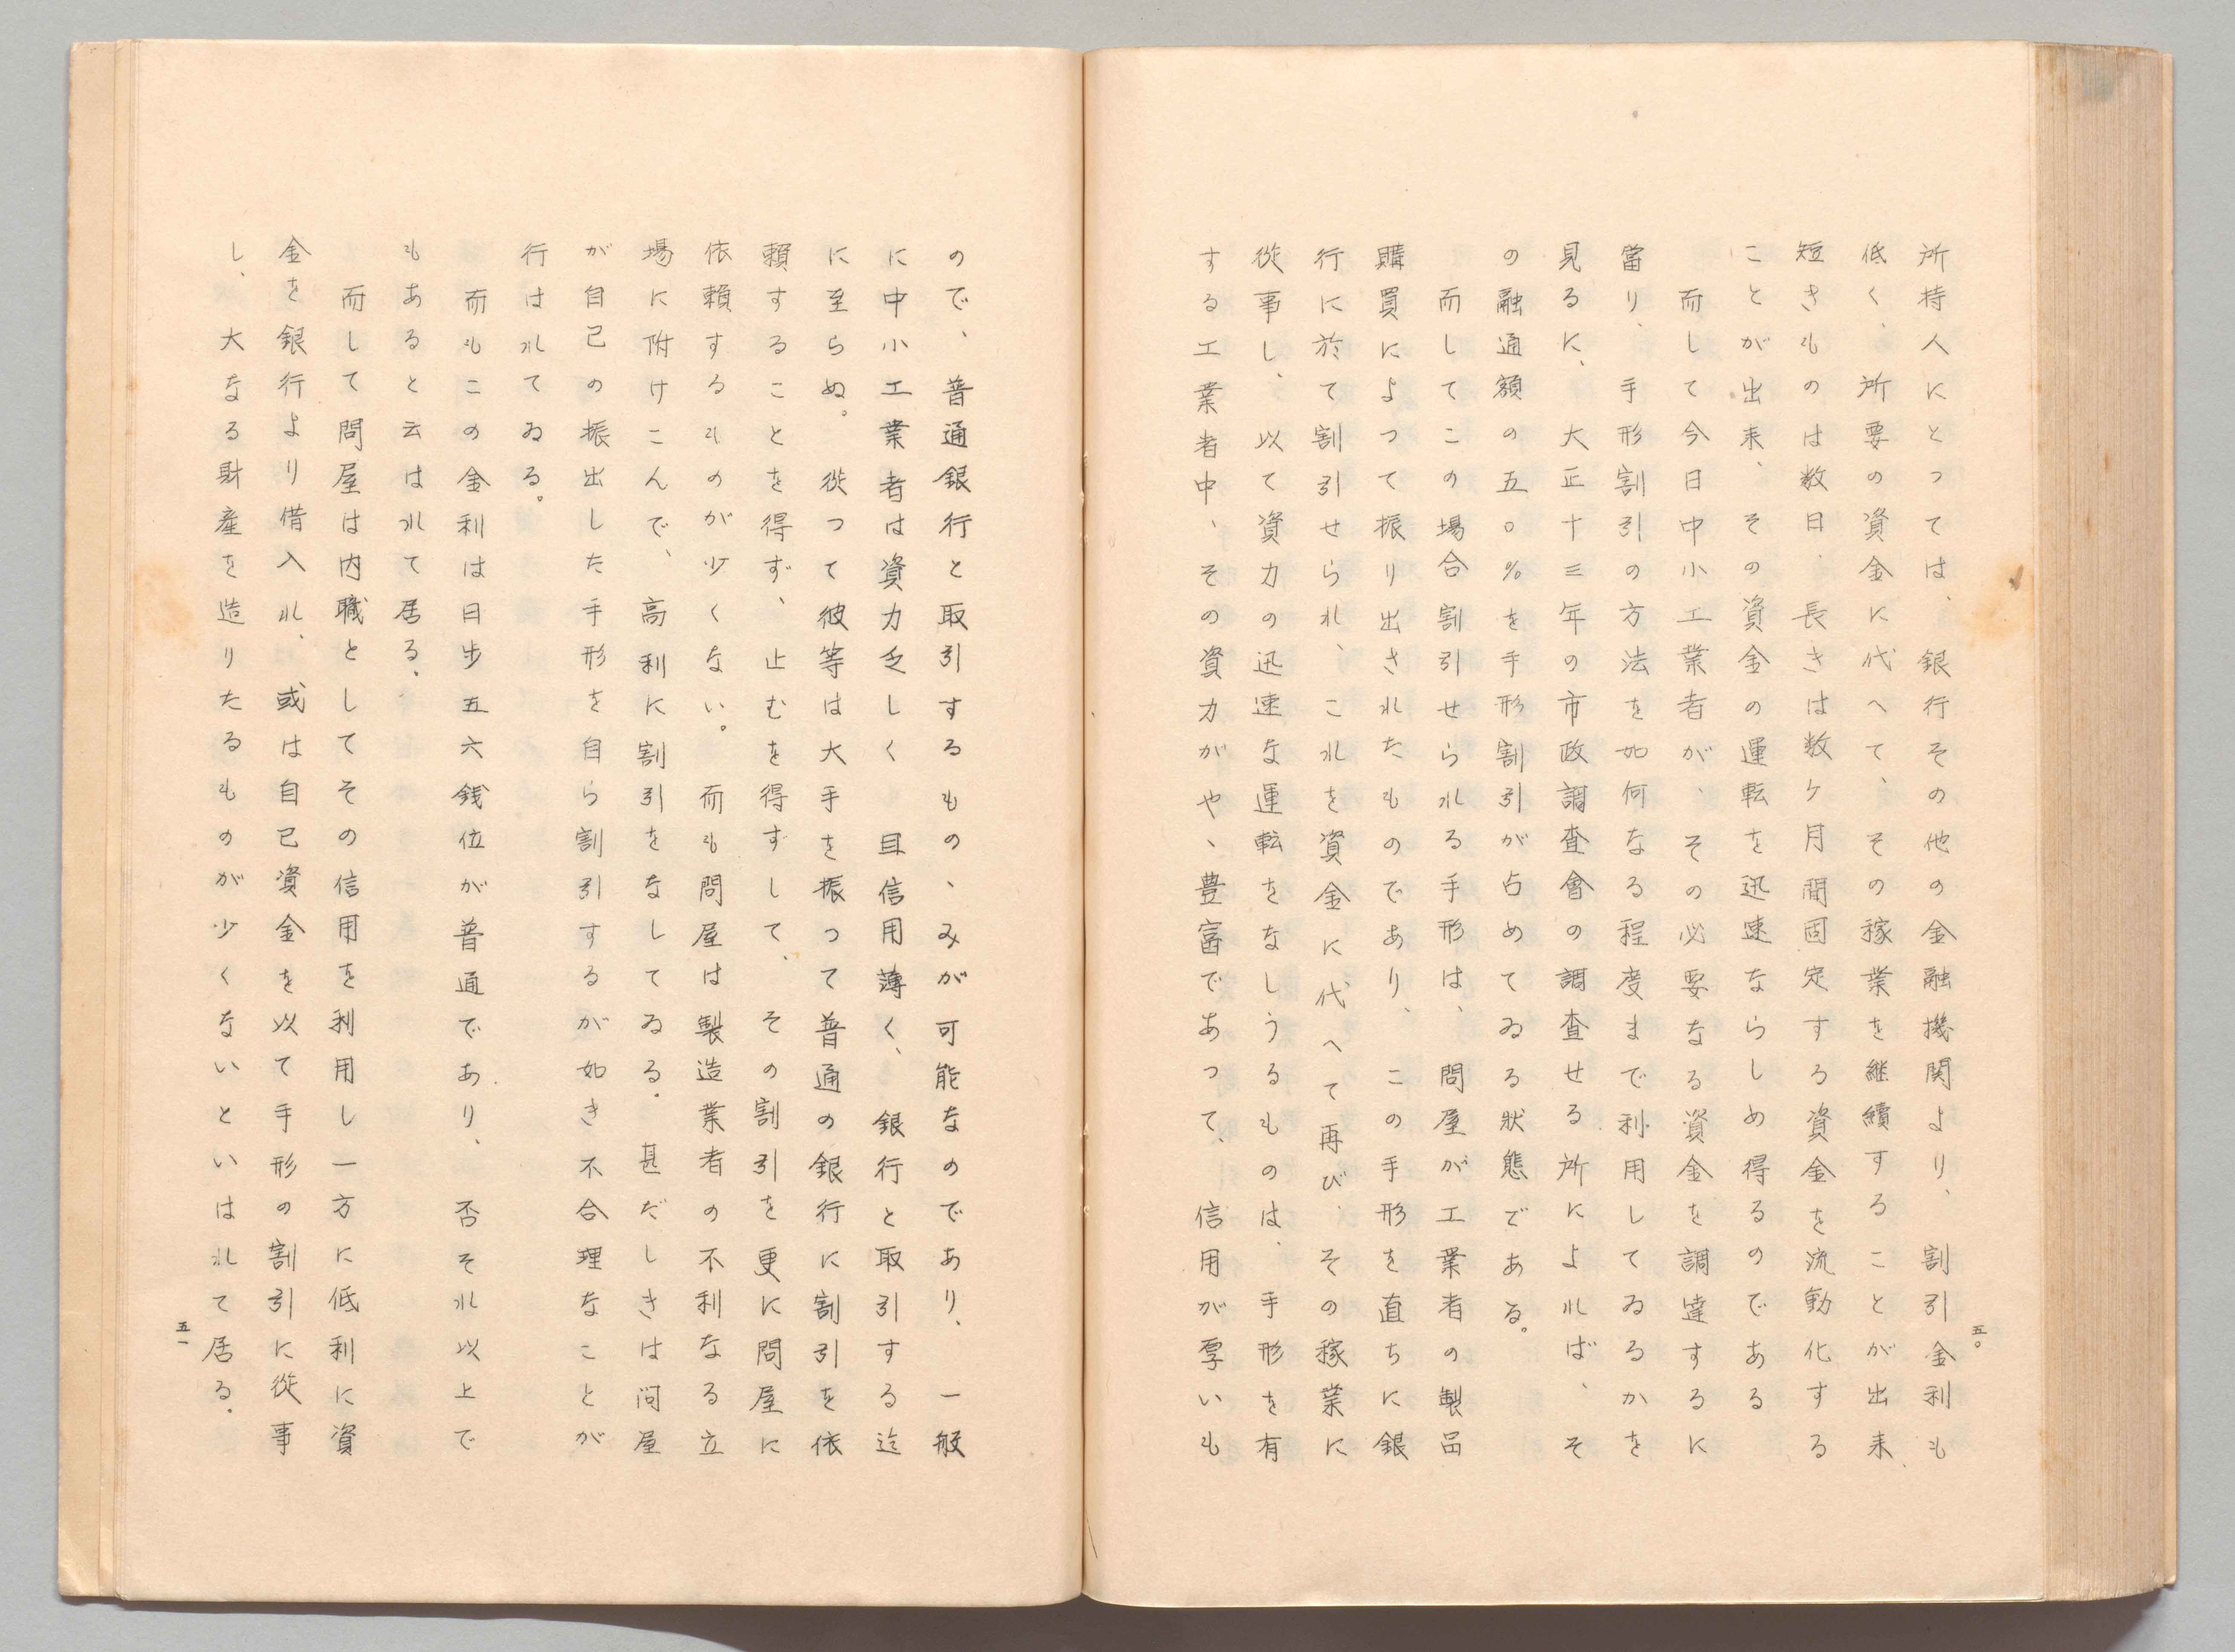 五〇
所持人にとっては、銀行その他の金融機関より、割引金利も
低く、所要の資金に代へて、その稼業を継續することが出来、
短きものは数日、長きは数ケ月間固定する資金を流動化する
ことが出来、その資金の運転を迅速ならしめ得るのである
而して今日中小工業者が、その必要なる資金を調達するに
當り、手形割引の方法を如何なる程度まで利用してゐるかを
見るに、大正十三年の市政調査會の調査せる所によれば、そ
の融通額の五〇%を手形割引が占めてゐる狀態である。
而してこの場合割引せられる手形は、問屋が工業者の製品
購買によって振り出されたものであり、この手形を直ちに銀
行に於て割引せられ、これを資金に代へて再び、その稼業に
從事し、以て資力の迅速な運転をなしうるものは、手形を有
する工業者中、その資力がや、豊富であって、信用が厚いも
ので、普通銀行と取引するもの、みが可能なのであり、一般
に中小工業者は資力乏しく 且信用薄く、銀行と取引する迄
に至らぬ。從つて彼等は大手を振つて普通の銀行に割引を依
頼することを得ず、止むを得ずして、その割引を更に問屋に
依頼するものが少くない。而も問屋は製造業者の不利なる立
場に附けこんで、高利に割引をなしてゐる。甚だしきは問屋
が自己の振出した手形を自ら割引するが如き不合理なことが
行はれてゐる。
而もこの金利は日歩五六銭位が普通であり、否それ以上で
もあると云はれて居る、
而して問屋は内職としてその信用を利用し一方に低利に資
金を銀行より借入れ、或は自己資金を以て手形の割引に從事
し、大なる財産を造りたるものが少くないといはれて居る.
五一